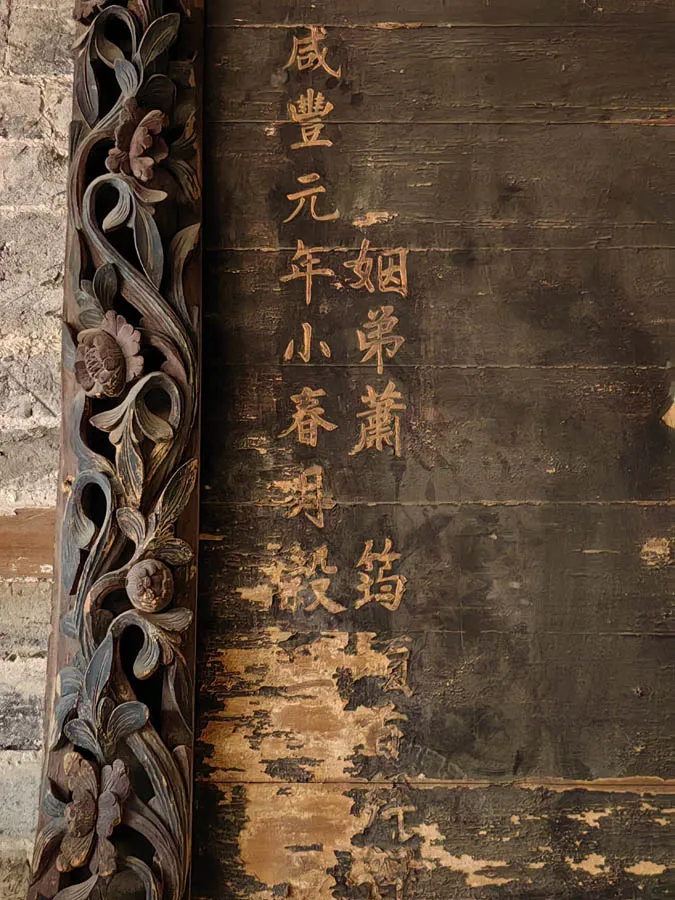 姻弟蕭 筠
咸豐元年小春月穀